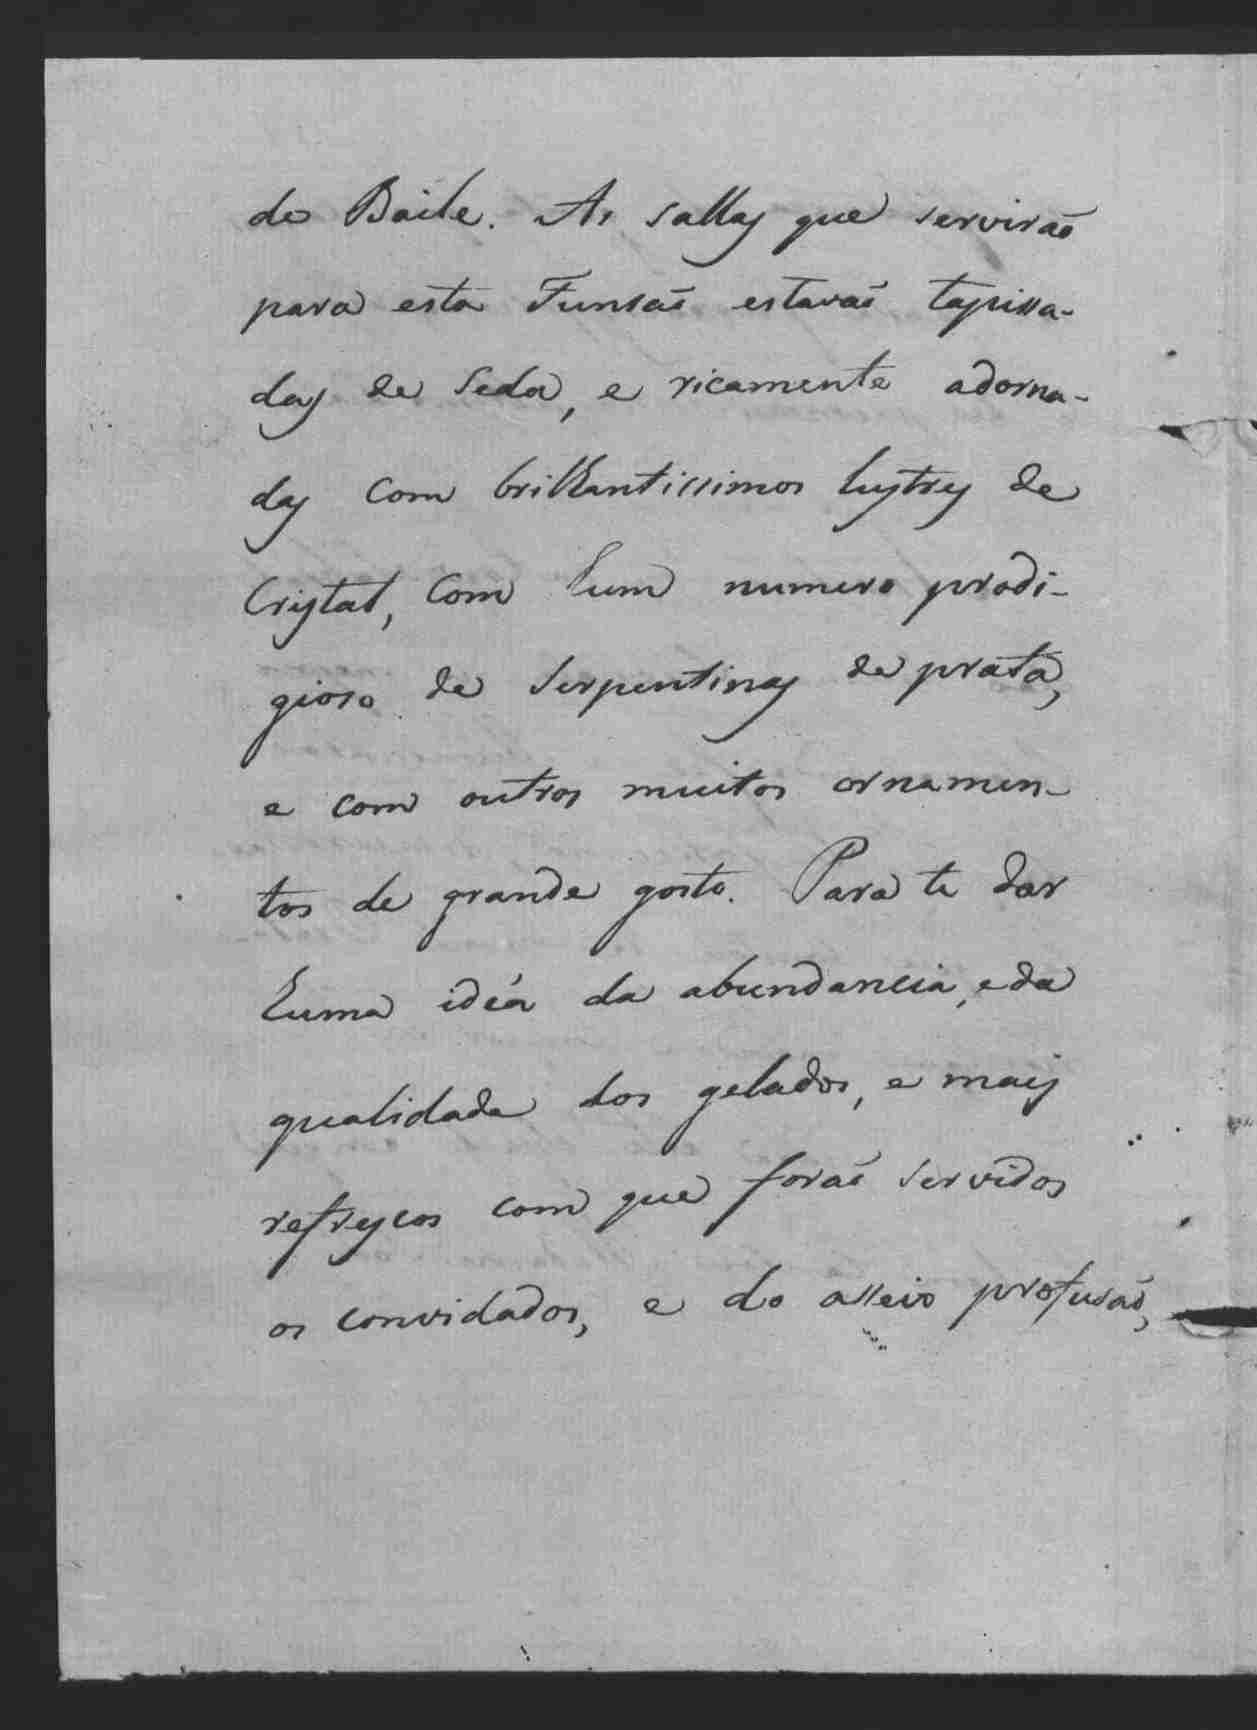 do Baile. As sallas que servirão
para esta Funsaõ estavaõ tapissa-
das de Seda, e ricamente adorna-
das com brilhantissimos lustres de
Cristal, com hum numero prodi-
gioso de Serpentinas de prata,
e com outros muitos ornamen-
tos de grande gosto. Para te dar
huma idéa da abundancia, e da
qualidade dos gelados, e mais
refrescos com que foraõ servidos
os convidados, e do asseio profusaõ,